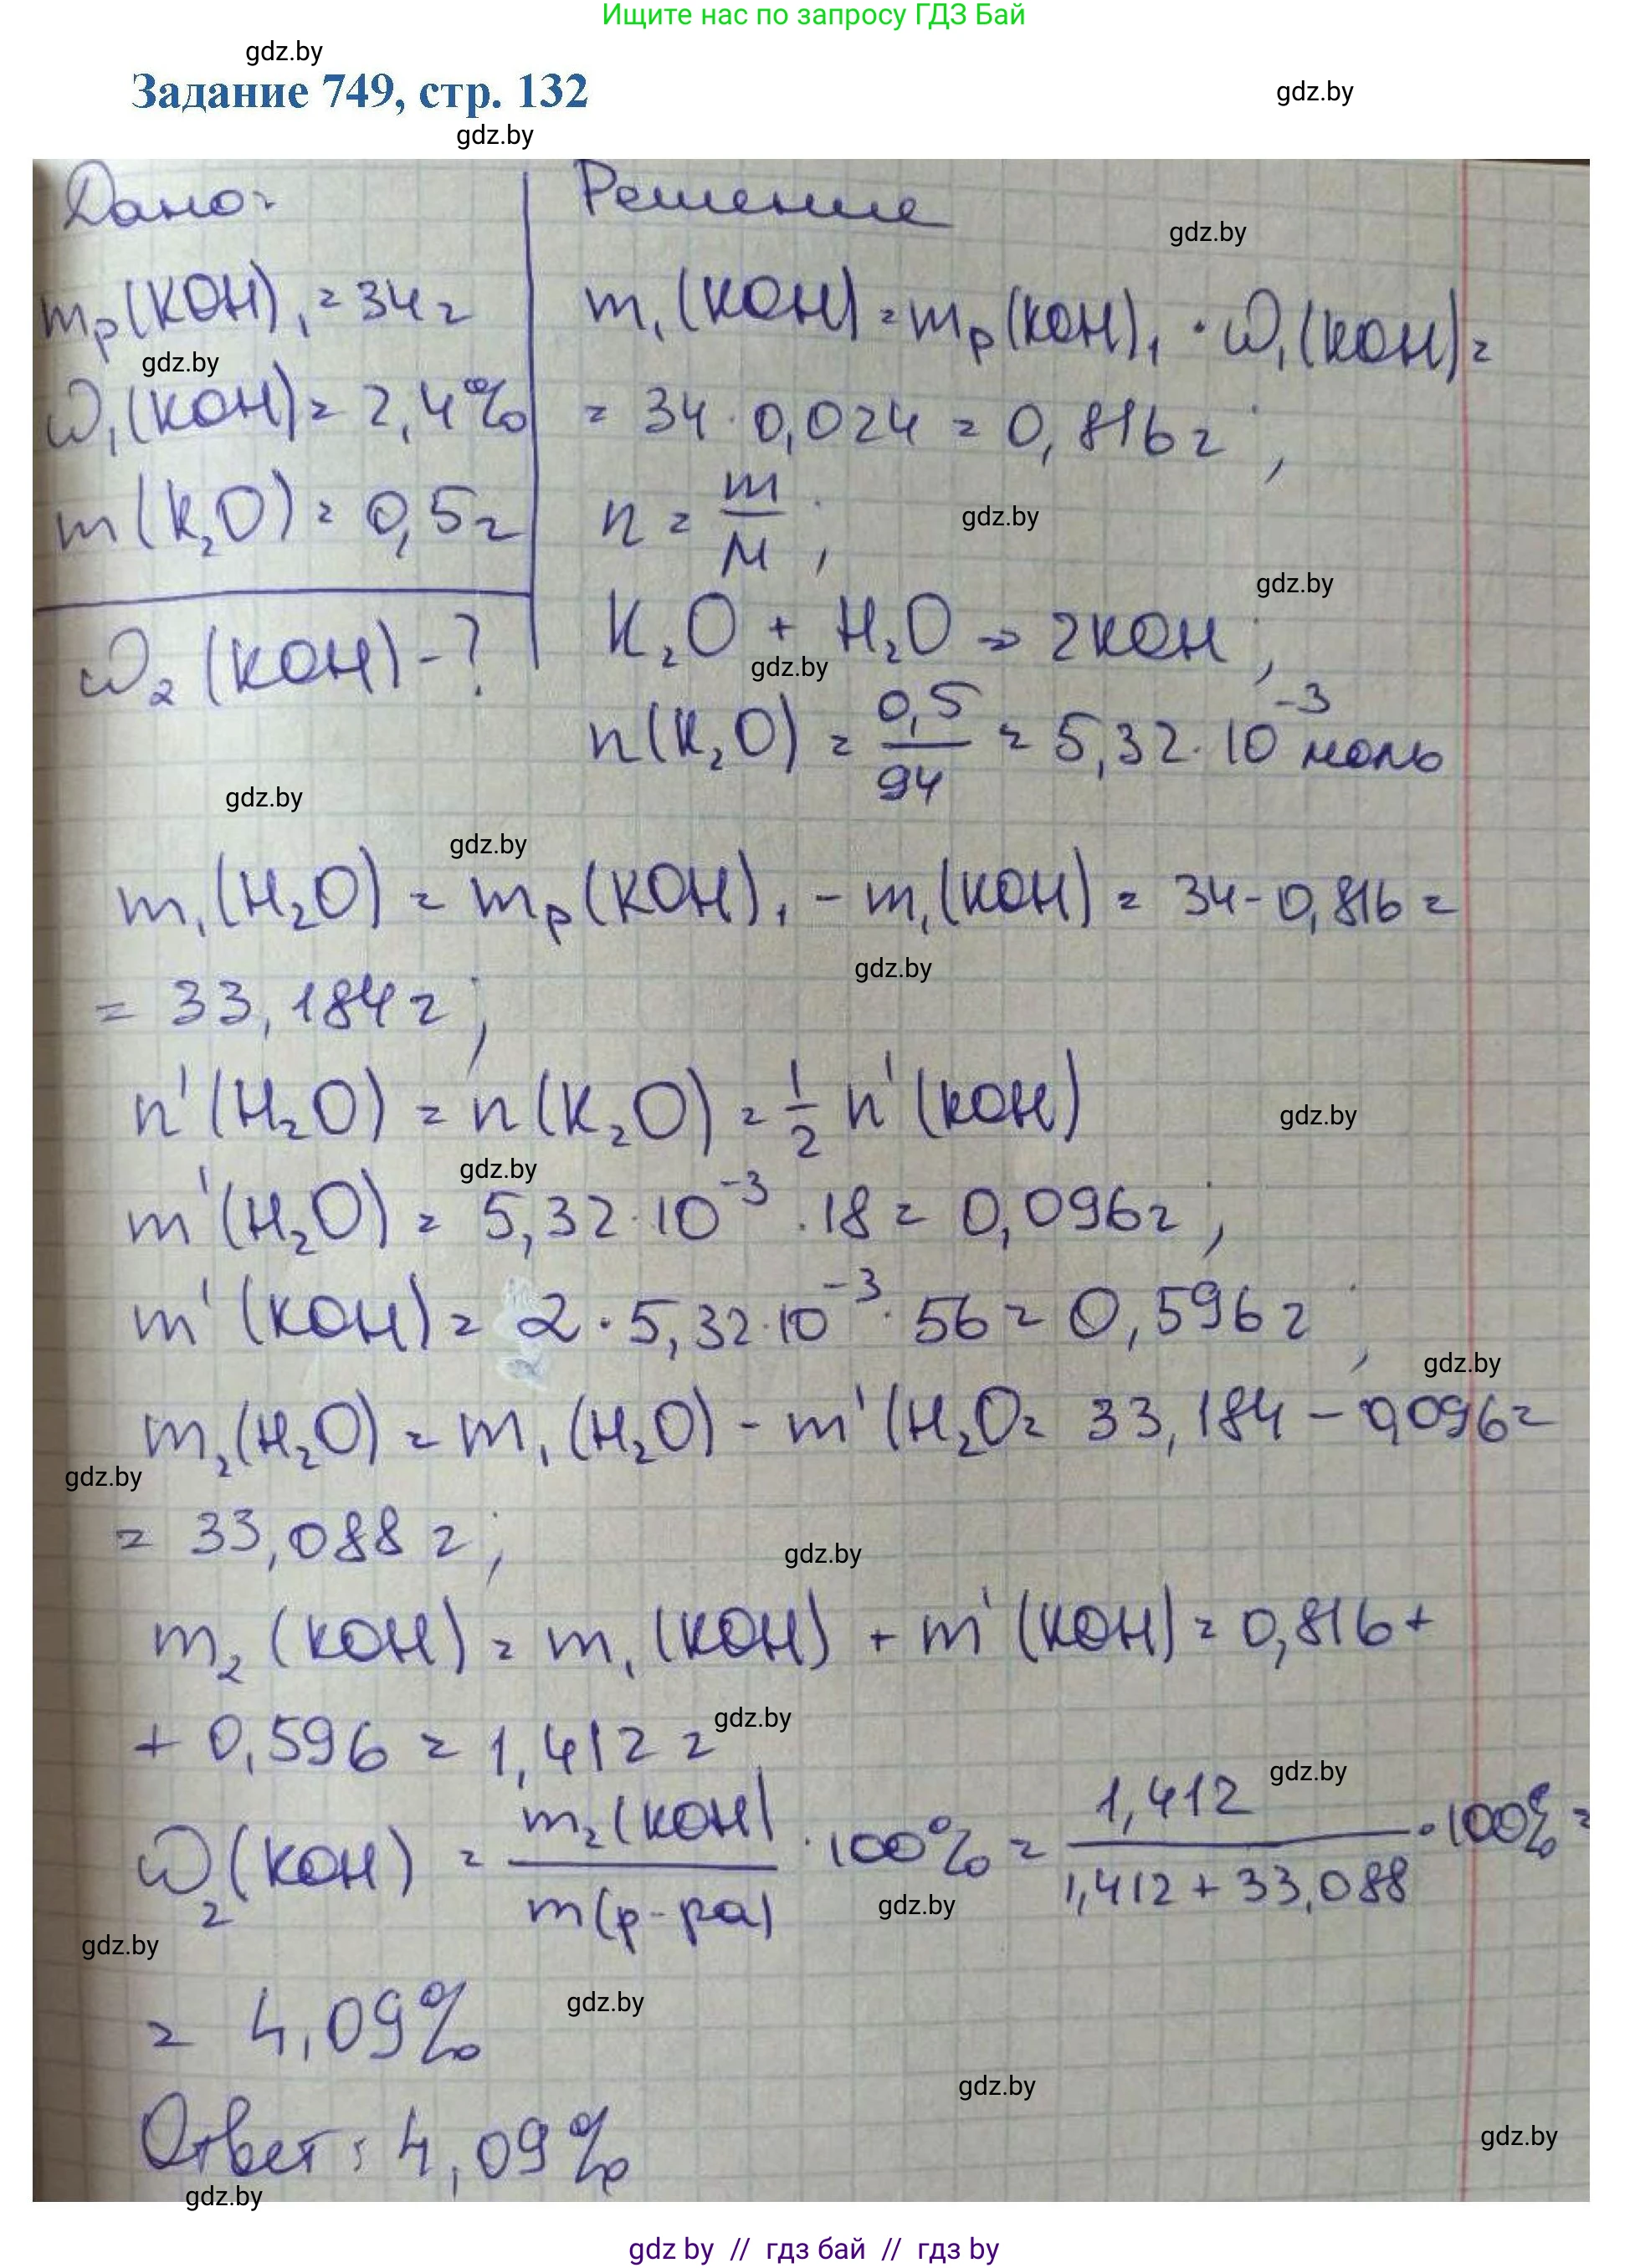 Ищите нас по запросу ГДЗ Бай
gdz.by
Задание 749, стр. 132
gdz.by
gdz.by
Дано: Решение
gdz.by
mр(KOH)₁ = 34г m₁(KOH) = mр(KOH)₁ · ω₁(KOH) =
gdz.by
ω₁(KOH) = 2,4% = 34 · 0,024 = 0,816г;
m(K₂O) = 0,5г n = m/M;
gdz.by
gdz.by
ω₂(KOH) - ? K₂O + H₂O → 2KOH;
gdz.by
n(K₂O) = 0,5/94 = 5,32·10⁻³ моль
gdz.by
gdz.by
m₁(H₂O) = mр(KOH)₁ - m₁(KOH) = 34 - 0,816 =
gdz.by
= 33,184г;
n'(H₂O) = n(K₂O) = 1/2 n'(KOH)
gdz.by
gdz.by
m'(H₂O) = 5,32·10⁻³ · 18 = 0,096г;
m'(KOH) = 2 · 5,32·10⁻³ · 56 = 0,596г;
gdz.by
m₂(H₂O) = m₁(H₂O) - m'(H₂O = 33,184 - 0,096 =
gdz.by
= 33,088г;
gdz.by
m₂(KOH) = m₁(KOH) + m'(KOH) = 0,816 +
+ 0,596 = 1,412г
gdz.by
gdz.by
ω₂(KOH) = m₂(KOH)/m(р-ра) · 100% = 1,412/1,412 + 33,088 · 100% =
gdz.by
gdz.by
= 4,09%
gdz.by
gdz.by
Ответ: 4,09%
gdz.by
gdz.by
gdz by // гдз бай // gdz by